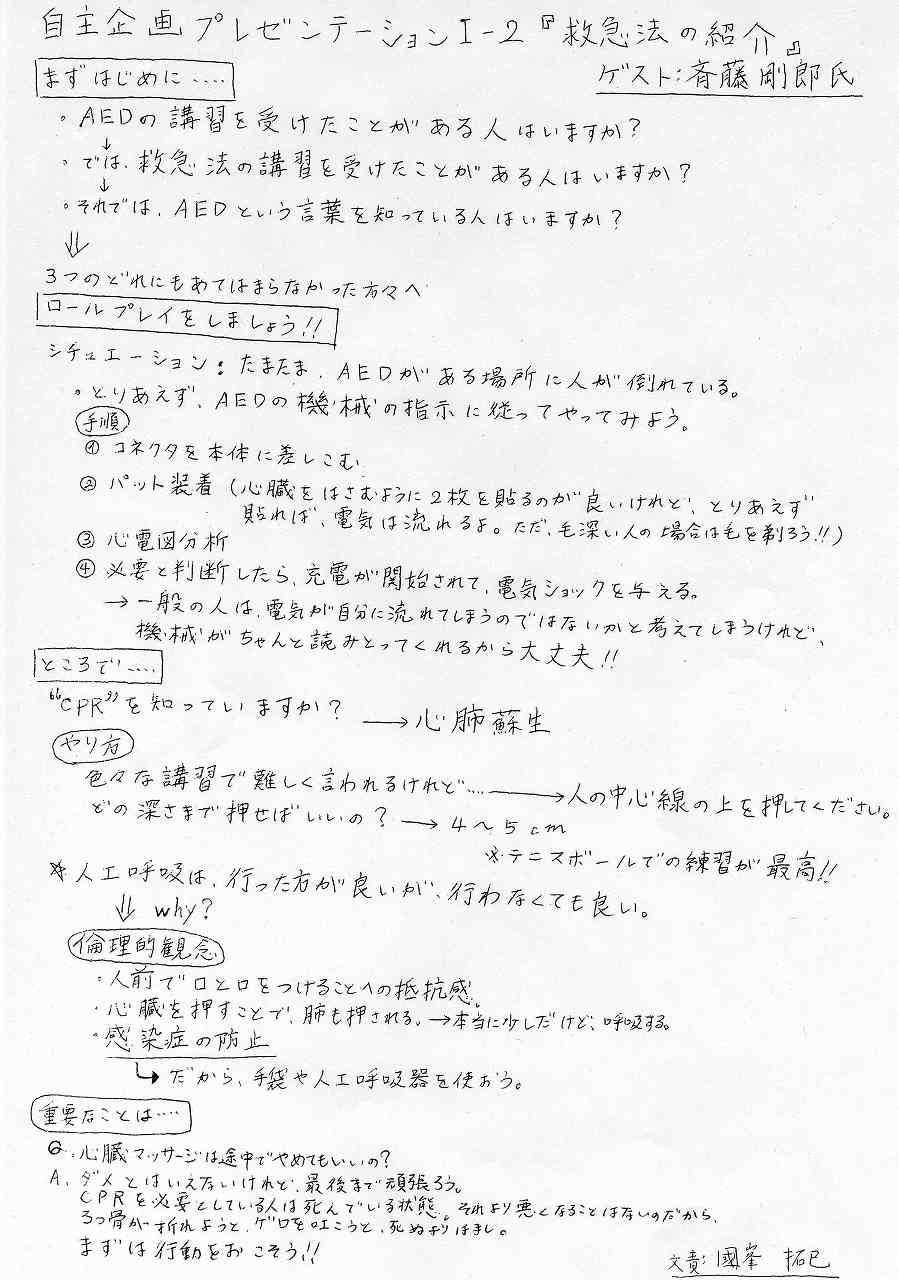 自主企画プレゼンテーションⅠ-2『救急法の紹介』
ゲスト:斉藤剛郎氏
まずはじめに‥‥
・AEDの講習を受けたことがある人はいますか?
↓
・では、救急法の講習を受けたことがある人はいますか?
↓
・それでは、AEDという言葉を知っている人はいますか?
⇓
3つのどれにもあてはまらなかった方々へ
ロールプレイをしましょう!!
シチュエーション:たまたま、AEDがある場所に人が倒れている。
・とりあえず、AEDの機械の指示に従ってやってみよう。
手順
① コネクタを本体に差しこむ
② パット装着(心臓をはさむように2枚を貼るのが良いけれど、とりあえず
貼れば、電気は流れるよ。ただ、毛深い人の場合は毛を剃ろう!!)
③ 心電図分析
④ 必要と判断したら、充電が開始されて、電気ショックを与える。
→一般の人は、電気が自分に流れてしまうのではないかと考えてしまうけれど、
機械がちゃんと読みとってくれるから大丈夫!!
ところで‥‥
“CPR”を知っていますか? →心肺蘇生
やり方
色々な講習で難しく言われるけれど‥‥→人の中心線の上を押してください。
どの深さまで押せばいいの?→4~5cm
※テニスボールでの練習が最高!!
*人工呼吸は、行った方が良いが、行わなくても良い。
⇓ why?
倫理的観念
・人前で口と口をつけることへの抵抗感。
・心臓を押すことで、肺も押される。→本当に少しだけど、呼吸する。
・感染症の防止
↳だから、手袋や人工呼吸器を使おう。
重要なことは‥‥
Q.心臓マッサージは途中でやめてもいいの?
A.ダメとはいえないけれど、最後まで頑張ろう。
CPRを必要としている人は死んでいる状態。それより悪くなることはないのだから、
ろっ骨が折れようと、ゲロを吐こうと、死ぬよりはまし。
まずは行動をおこそう!!
文責:國峯 拓巳